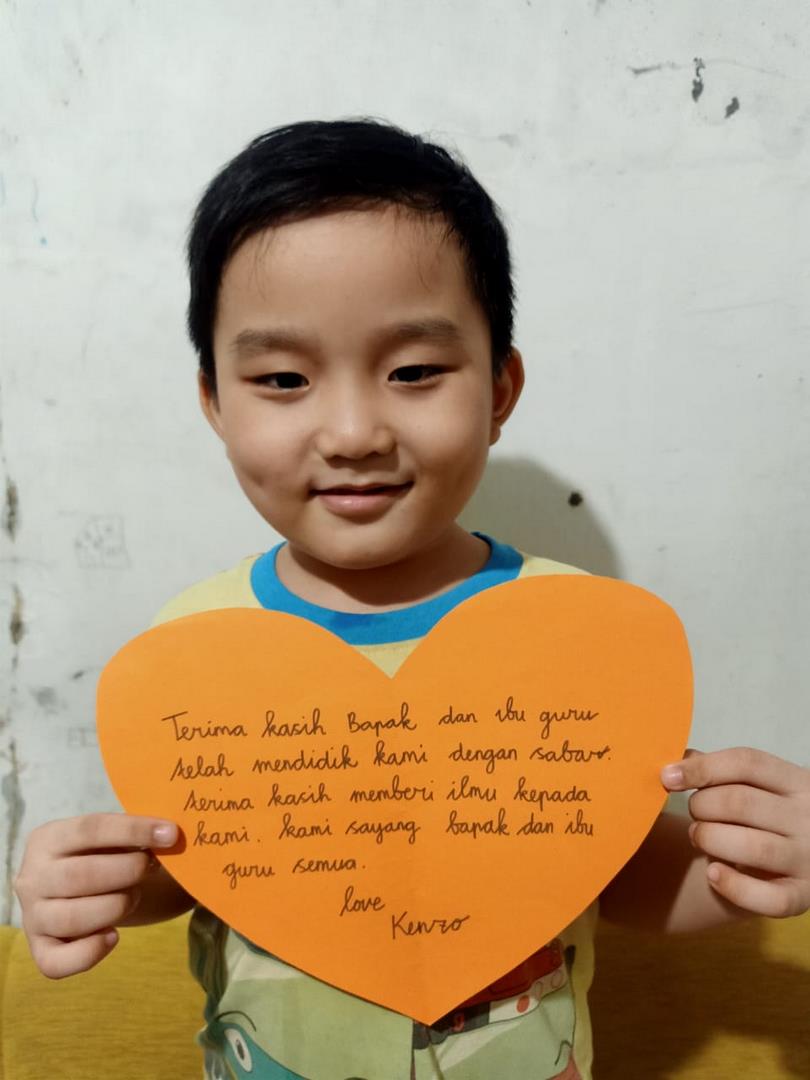 Terima kasih Bapak dan ibu guru
telah mendidik kami dengan sabar.
terima kasih memberi ilmu kepada
kami. kami sayang bapak dan ibu
guru semua.
love
Kenzo